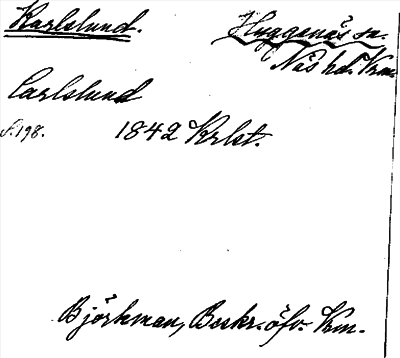 Karlslund. Huggenäs sn.
Näs hd. Krm.
Carlslund
s. 198. 1842 Krlst.
Björkman, Beskr. öfv. Krm.